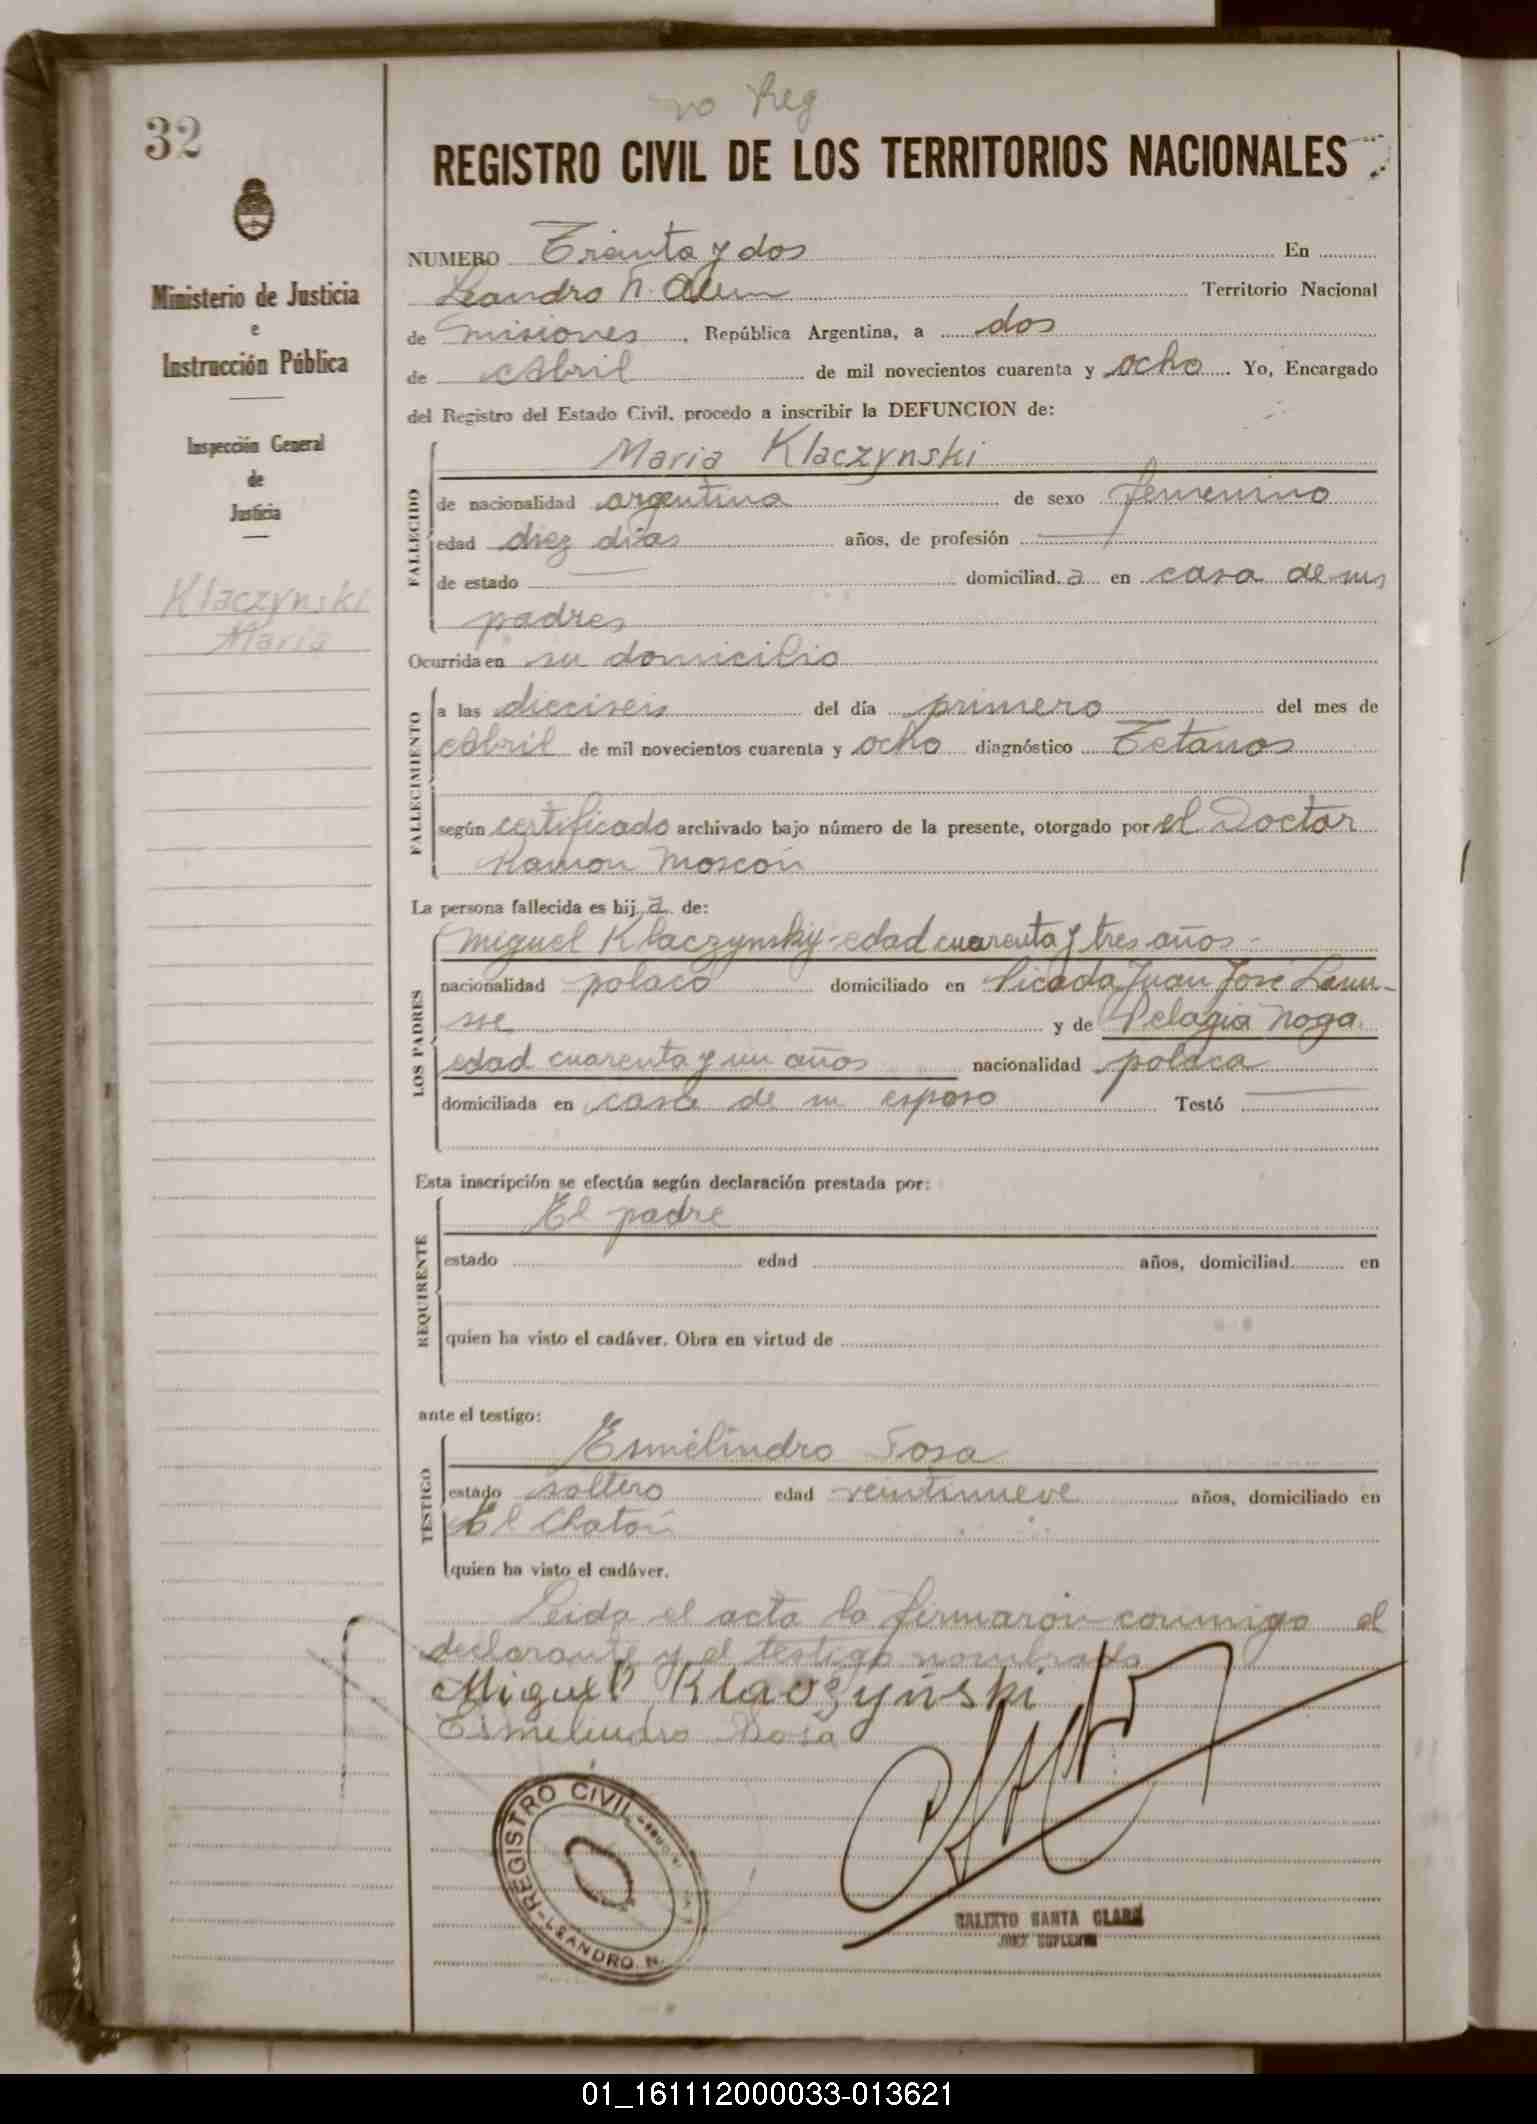 no Reg
32
REGISTRO CIVIL DE LOS TERRITORIOS NACIONALES
Ministerio de Justicia
e
Instrucción Pública
Inspección General
de
Justicia
Klaczynski
Maria
NUMERO Treinta y dos En
Leandro N. Alem Territorio Nacional
de Misiones, República Argentina, a dos
de Abril de mil novecientos cuarenta y ocho. Yo, Encargado
del Registro del Estado Civil, procedo a inscribir la DEFUNCION de:
FALLECIDO
Maria Klaczynski
de nacionalidad argentina de sexo femenino
edad diez dias años, de profesión
de estado domiciliad.a en casa de sus
padres
Ocurrida en su domicilio
FALLECIMIENTO
a las dieciseis del día primero del mes de
Abril de mil novecientos cuarenta y ocho diagnóstico Tetanos
según certificado archivado bajo número de la presente, otorgado por el Doctor
Ramon Moscon
La persona fallecida es hij.a. de:
LOS PADRES
Miguel Klaczynsky - edad cuarenta y tres años -
nacionalidad polaco domiciliado en Picada Juan José Lanu-
sse y de Pelagia Noga.
edad cuarenta y un años nacionalidad polaca
domiciliada en casa de su esposo Testó
Esta inscripción se efectúa según declaración prestada por:
REQUIRENTE
El padre
estado edad años, domiciliad en
quien ha visto el cadáver. Obra en virtud de
ante el testigo:
TESTIGO
Esmelindro Sosa
estado soltero edad veintinueve años, domiciliado en
El Chatón
quien ha visto el cadáver.
Leida el acta la firmaron conmigo el
declarante y el testigo nombrado
Miguel Klaczyński
Esmelindro Sosa
REGISTRO CIVIL
LEANDRO N.
CALIXTO SANTA CLARA
JUEZ SUPLENTE
01_161112000033-013621